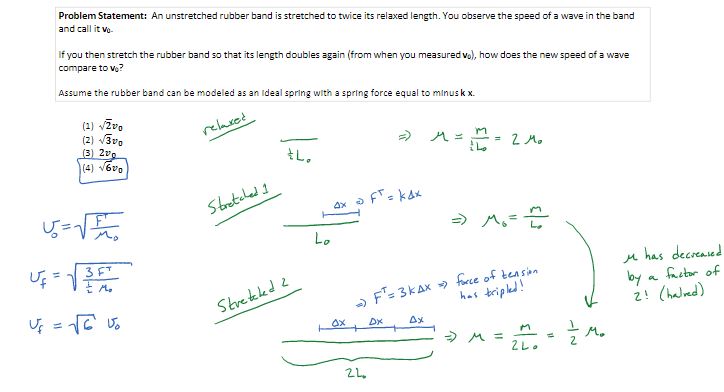 Problem Statement: An unstretched rubber band is stretched to twice its relaxed length. You observe the speed of a wave in the band
and call it v₀.
If you then stretch the rubber band so that its length doubles again (from when you measured v₀), how does the new speed of a wave
compare to v₀?
Assume the rubber band can be modeled as an ideal spring with a spring force equal to minus k x.
(1) √2v₀
(2) √3v₀
(3) 2v₀
(4) √6v₀
relaxed
½L₀
⇒ μ = m/½L₀ = 2 μ₀
Stretched 1
Δx ⇒ Fᵀ = kΔx
L₀
⇒ μ₀ = m/L₀
v₀ = √(Fᵀ/μ₀)
μ has decreased
by a factor of
2! (halved)
v_f = √(3Fᵀ/½μ₀)
Stretched 2
⇒ Fᵀ = 3kΔx ⇒ force of tension
has tripled!
Δx Δx Δx
⇒ μ = m/2L₀ = ½ μ₀
v_f = √6 v₀
2L₀